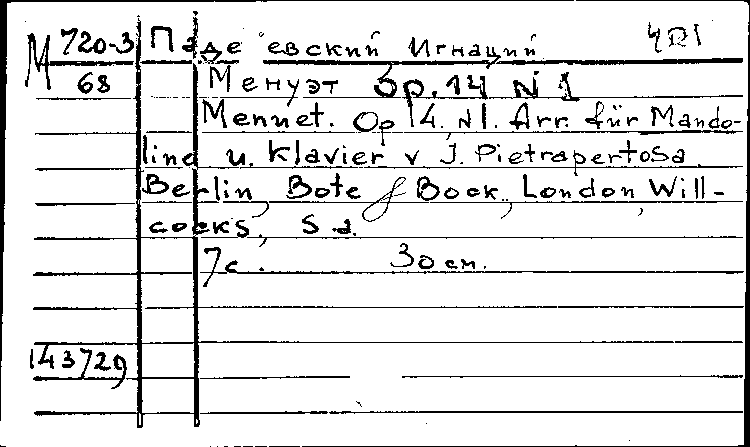 М 720-3 Падеревский Игнаций
68 Менуэт Op.14 N 1
Menuet. Op 14, N1. Arr. für Mando-
line u. Klavier v J. Pietrapertosa.
Berlin, Bote & Bock, London, Will-
cocks, S a.
7 с. 30 см.
143729